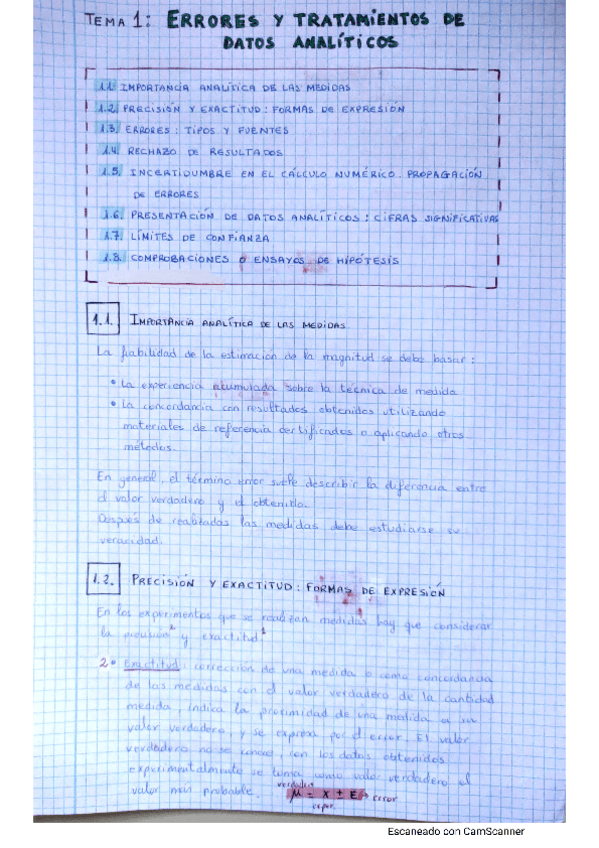 TEMA 1: ERRORES Y TRATAMIENTOS DE
DATOS ANALÍTICOS
1.1. IMPORTANCIA ANALÍTICA DE LAS MEDIDAS
1.2. PRECISIÓN Y EXACTITUD: FORMAS DE EXPRESIÓN
1.3. ERRORES: TIPOS Y FUENTES
1.4. RECHAZO DE RESULTADOS
1.5. INCERTIDUMBRE EN EL CÁLCULO NUMÉRICO. PROPAGACIÓN
DE ERRORES
1.6. PRESENTACIÓN DE DATOS ANALÍTICOS: CIFRAS SIGNIFICATIVAS
1.7. LÍMITES DE CONFIANZA
1.8. COMPROBACIONES O ENSAYOS DE HIPÓTESIS
1.1. IMPORTANCIA ANALÍTICA DE LAS MEDIDAS
La fiabilidad de la estimación de la magnitud se debe basar:
• La experiencia acumulada sobre la técnica de medida
• La concordancia con resultados obtenidos utilizando
materiales de referencia certificados o aplicando otros
métodos.
En general, el término error suele describir la diferencia entre
el valor verdadero y el obtenido.
Después de realizadas las medidas debe estudiarse su
veracidad.
1.2. PRECISIÓN Y EXACTITUD: FORMAS DE EXPRESIÓN
En los experimentos que se realizan medidas hay que considerar
la precisión² y exactitud¹
2• Exactitud: corrección de una medida o como concordancia
de las medidas con el valor verdadero de la cantidad
medida, indica la proximidad de una medida a su
valor verdadero, y se expresa por el error. El valor
verdadero no se conoce, con los datos obtenidos
experimentalmente se toma como valor verdadero el
valor más probable.
verdadero
μ = x ± E → error
exper.
Escaneado con CamScanner